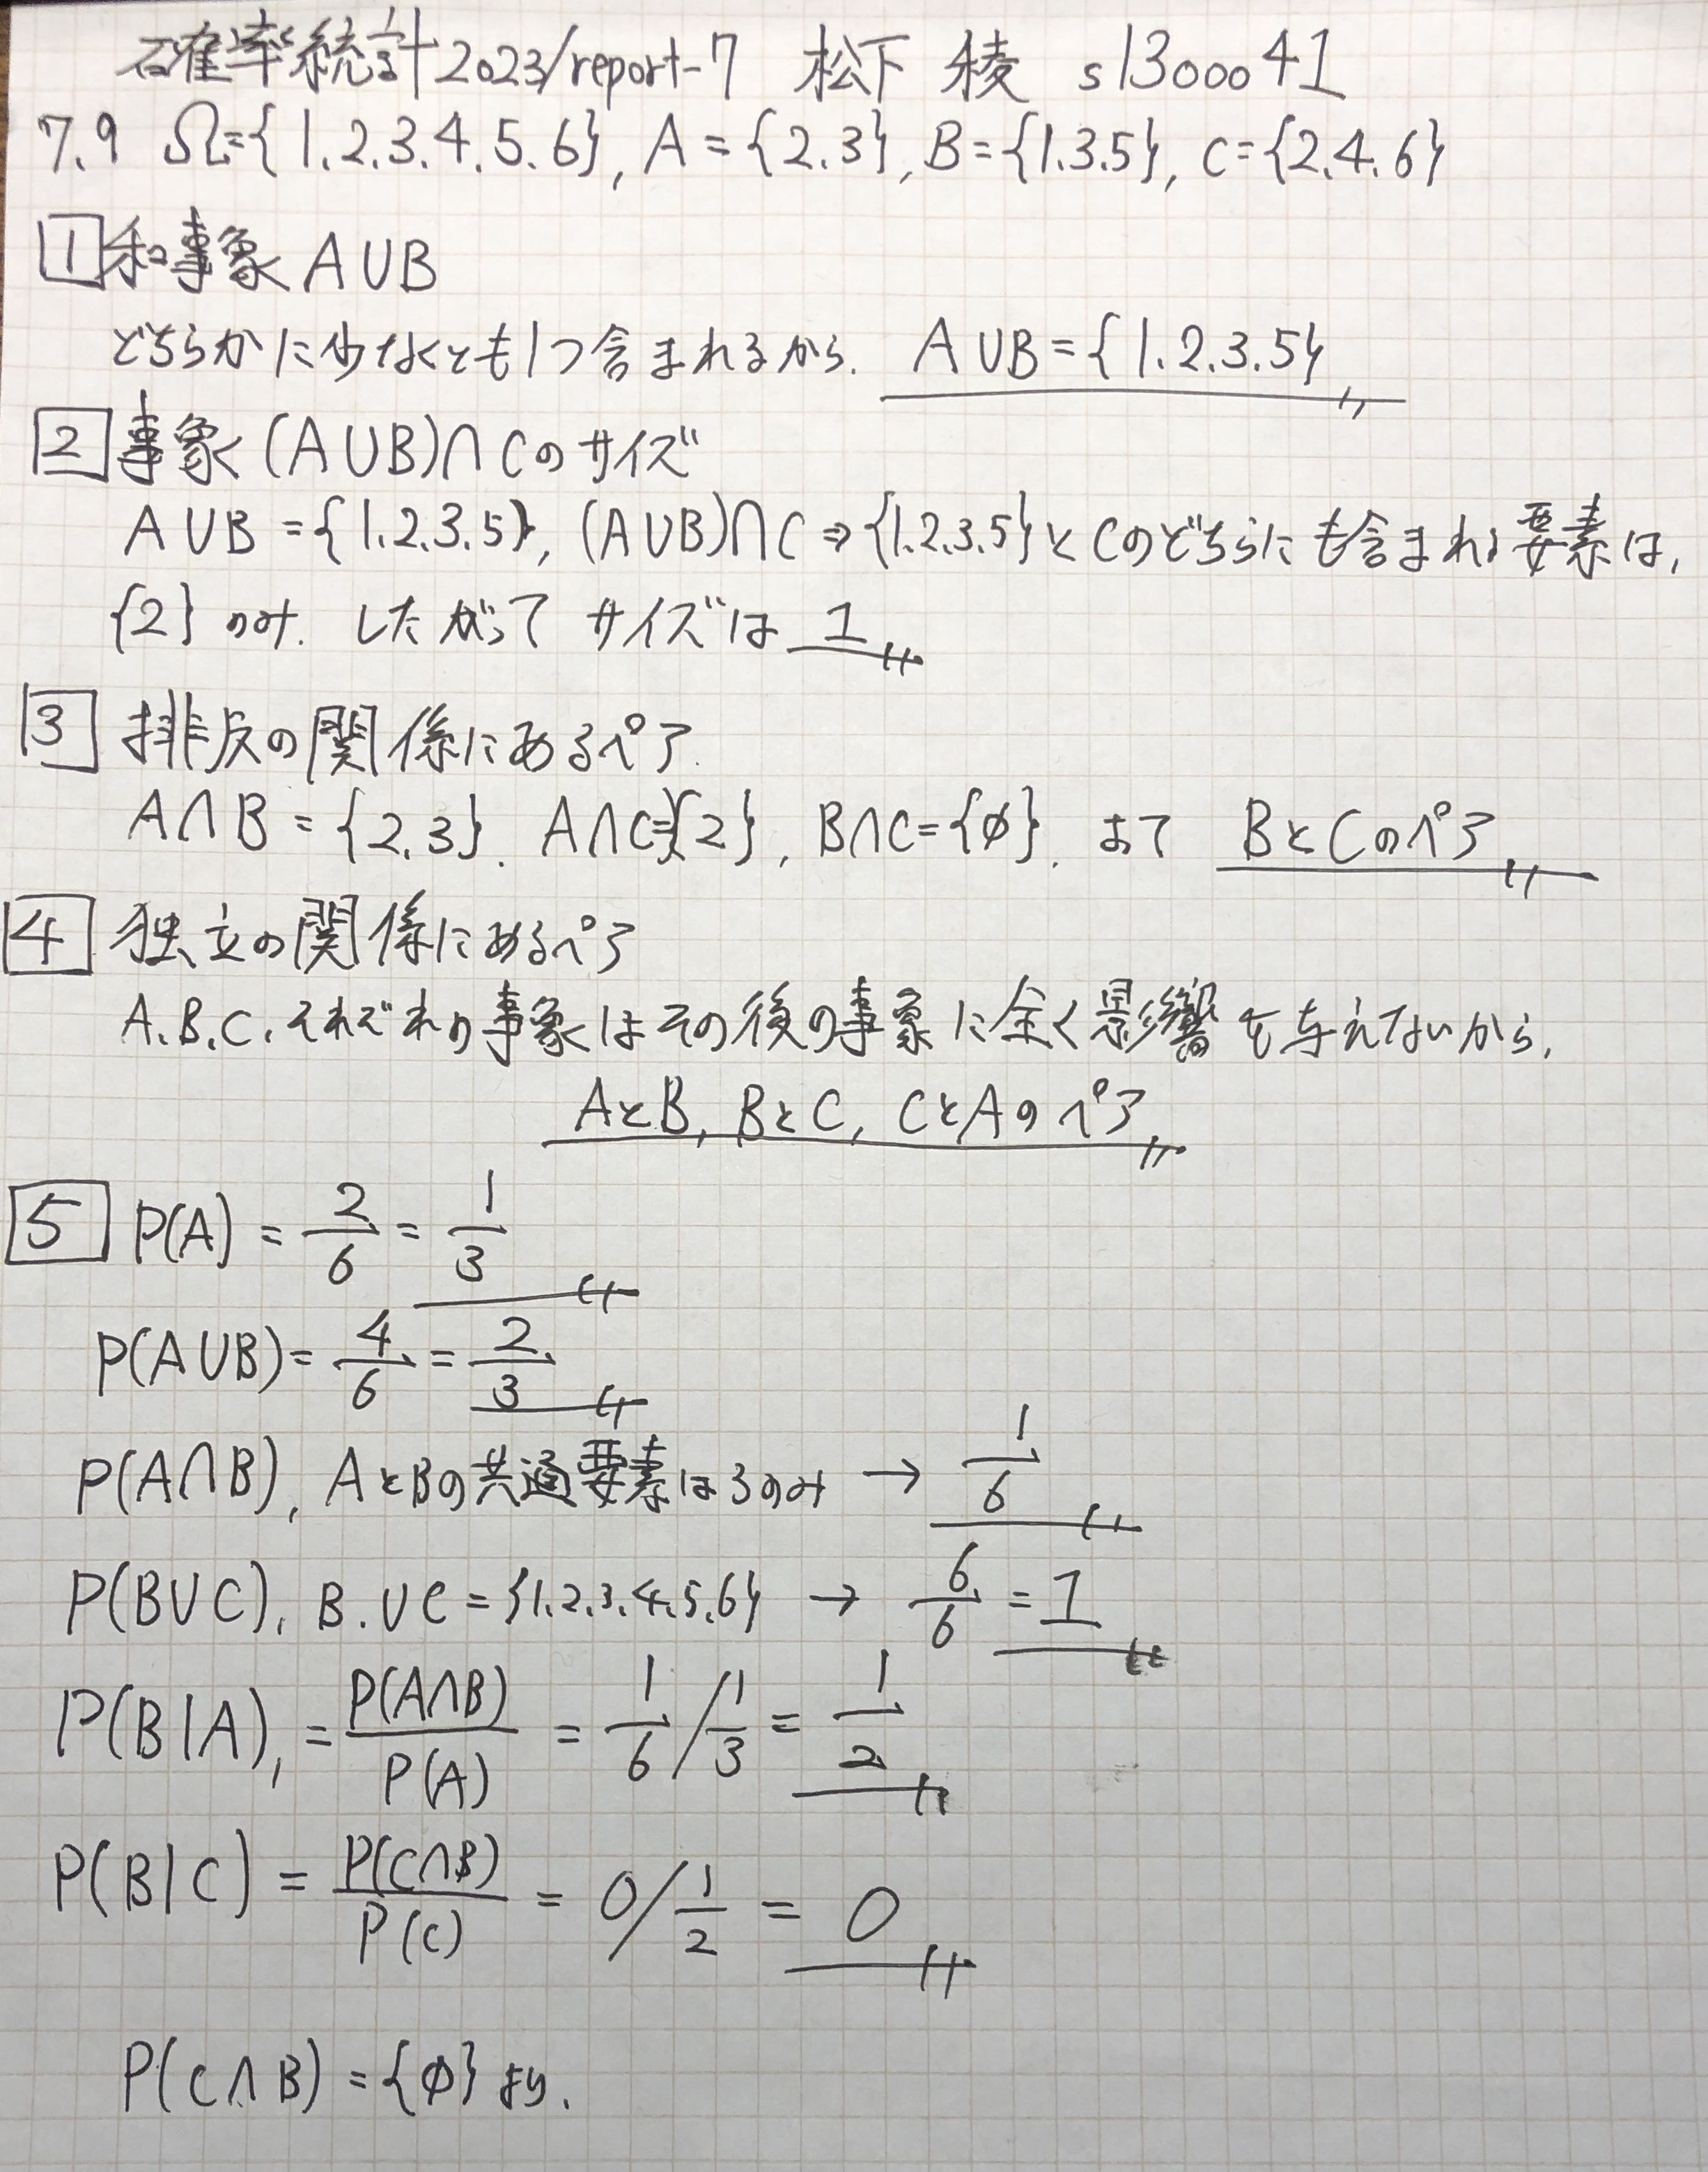 確率統計2023/report-7 松下 稜 s1300041
7.9 Ω={1.2.3.4.5.6}, A={2.3}, B={1.3.5}, C={2.4.6}
1 和事象 A∪B
どちらかに少なくとも1つ含まれるから. A∪B={1.2.3.5}
2 事象(A∪B)∩Cのサイズ
A∪B={1.2.3.5}, (A∪B)∩C⇒{1.2.3.5}とCのどちらにも含まれる要素は,
{2}のみ. したがって サイズは 1
3 排反の関係にあるペア.
A∩B={2.3}. A∩C={2}, B∩C={φ}. よて BとCのペア
4 独立の関係にあるペア
A.B.C.それぞれの事象はその後の事象に全く影響を与えないから.
AとB, BとC, CとAのペア
5 P(A) = 2/6 = 1/3
P(A∪B) = 4/6 = 2/3
P(A∩B), AとBの共通要素は3のみ → 1/6
P(B∪C), B.∪C={1.2.3.4.5.6} → 6/6 = 1
P(B|A), = P(A∩B)/P(A) = 1/6 / 1/3 = 1/2
P(B|C) = P(C∩B)/P(C) = 0 / 1/2 = 0
P(C∩B) = {φ}より.